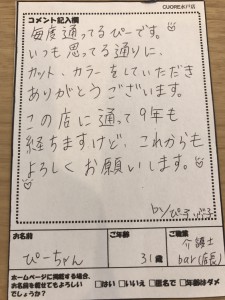 CUORE水戸店
コメント記入欄
毎度通ってるぴーです。
いつも思ってる通りに、
カット、カラーをしていただき
ありがとうございます。
この店に通って9年も
経ちますけど、これからも
よろしくお願いします。
by ぴ
お名前
ご年齢
ご職業
ぴーちゃん
31歳
介護士
bar(店長)
ホームページに掲載する場合、
お名前を載せてもよろしい
でしょうか?
□はい □いいえ □匿名で □年齢はダメ